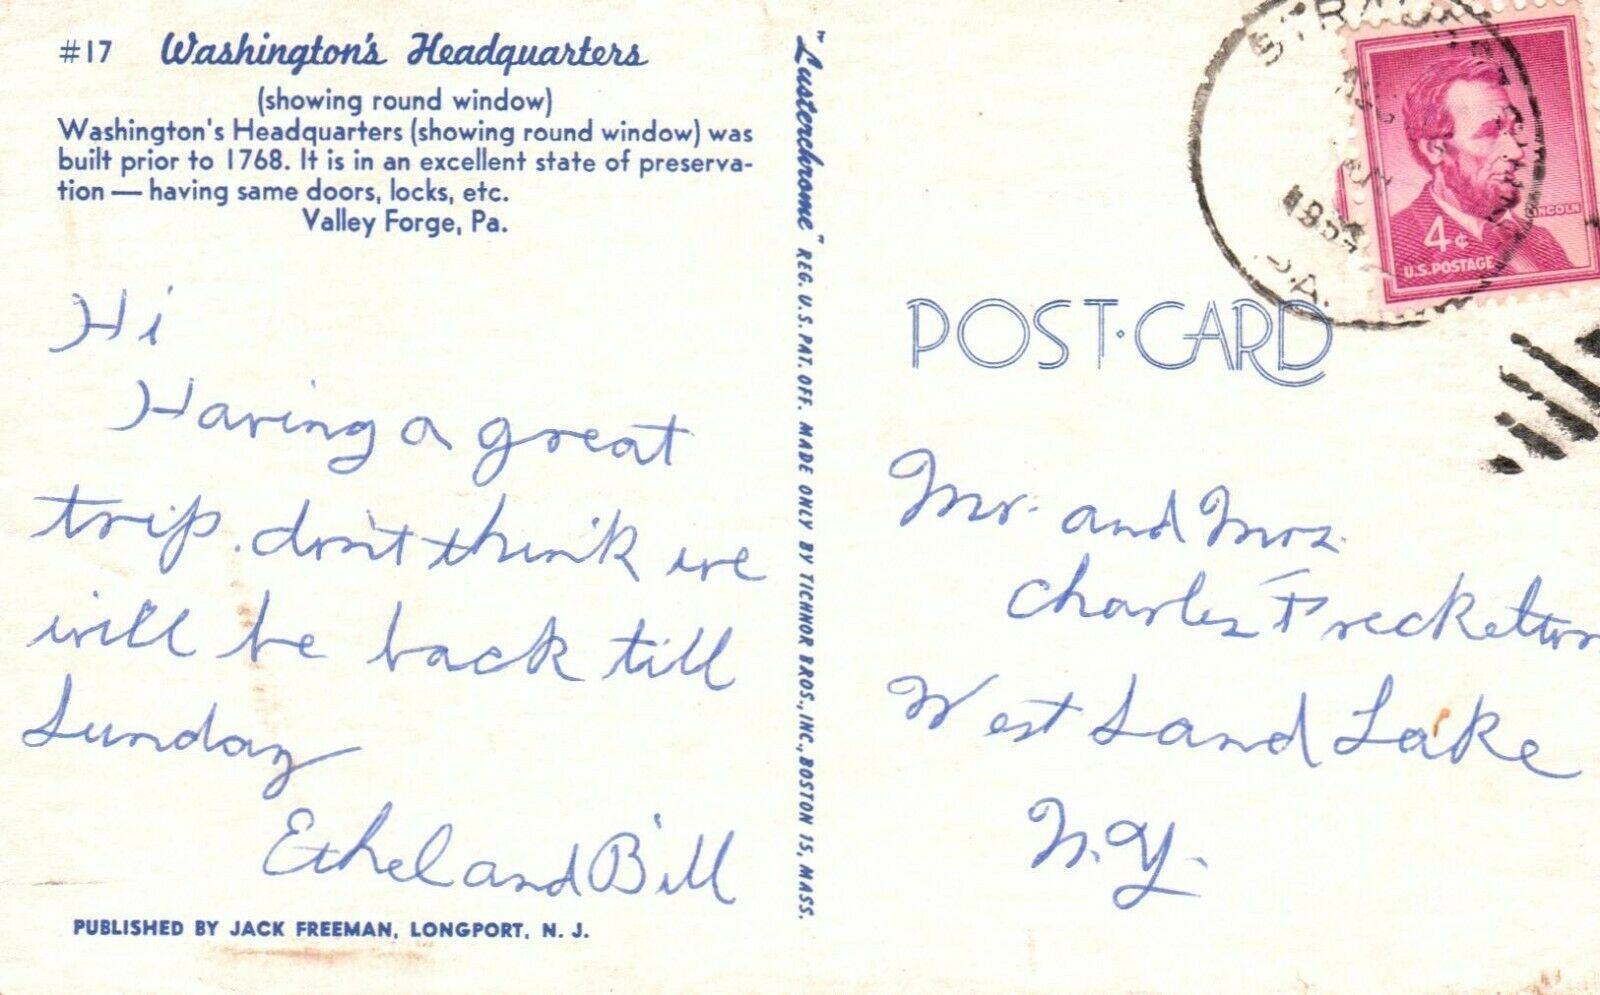 #17 Washington's Headquarters
(showing round window)
Washington's Headquarters (showing round window) was
built prior to 1768. It is in an excellent state of preserva-
tion — having same doors, locks, etc.
Valley Forge, Pa.
Hi
Having a great
trip. don't think we
will be back till
Sunday
Ethel and Bill
PUBLISHED BY JACK FREEMAN, LONGPORT, N. J.
"Lusterchrome" REG. U.S. PAT. OFF. MADE ONLY BY TICHNOR BROS., INC., BOSTON 15, MASS.
PA.
LINCOLN
4¢
U.S. POSTAGE
POST·CARD
Mr. and Mrs.
Charles Freckelton
West Sand Lake
N.Y.